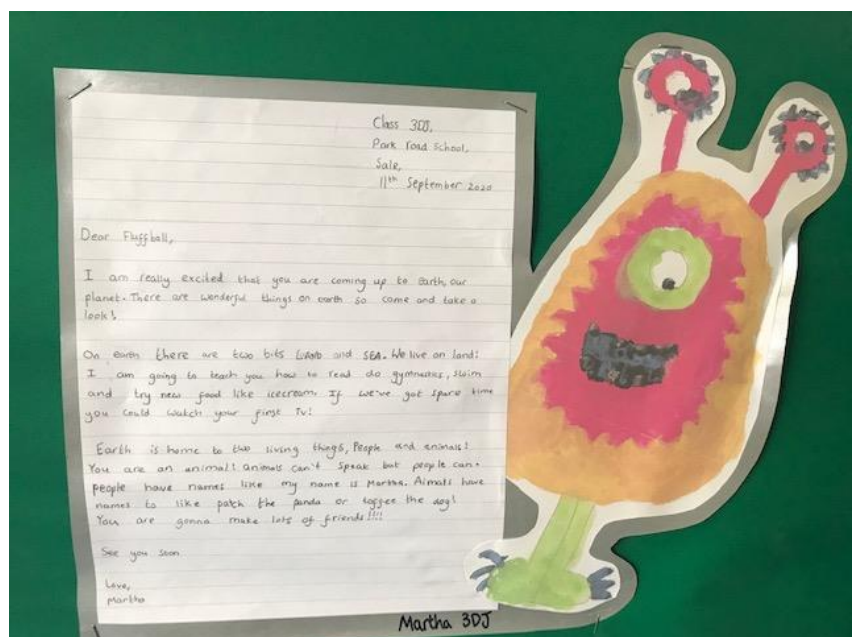 Class 3DJ,
Park Road School,
Sale,
11th September 2020
Dear Fluffball,
I am really excited that you are coming up to Earth, our
planet. There are wonderful things on earth so come and take a
look!
On earth there are two bits LAND and SEA. We live on land!
I am going to teach you how to read do gymnastics, swim
and try new food like icecream. If we've got spare time
you could watch your first Tv!
Earth is home to two living things, People and animals!
You are an animal! animals can't speak but people can.
people have names like my name is Martha. Aimals have
names to like patch the panda or toffee the dog!
You are gonna make lots of friends!!!!
See you soon
Love,
Martha
Martha 3DJ